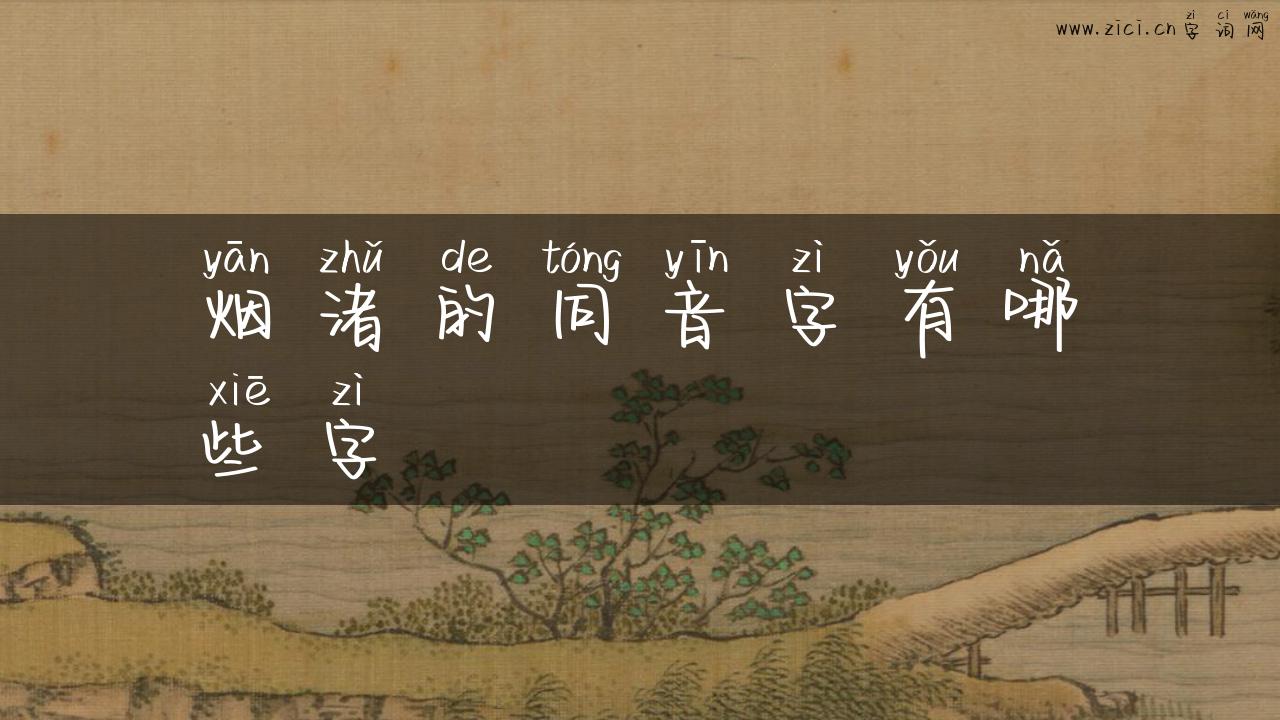 zì cí wǎng
www.zici.cn 字词网
yān zhǔ de tóng yīn zì yǒu nǎ
烟渚的同音字有哪
xiē zì
些字